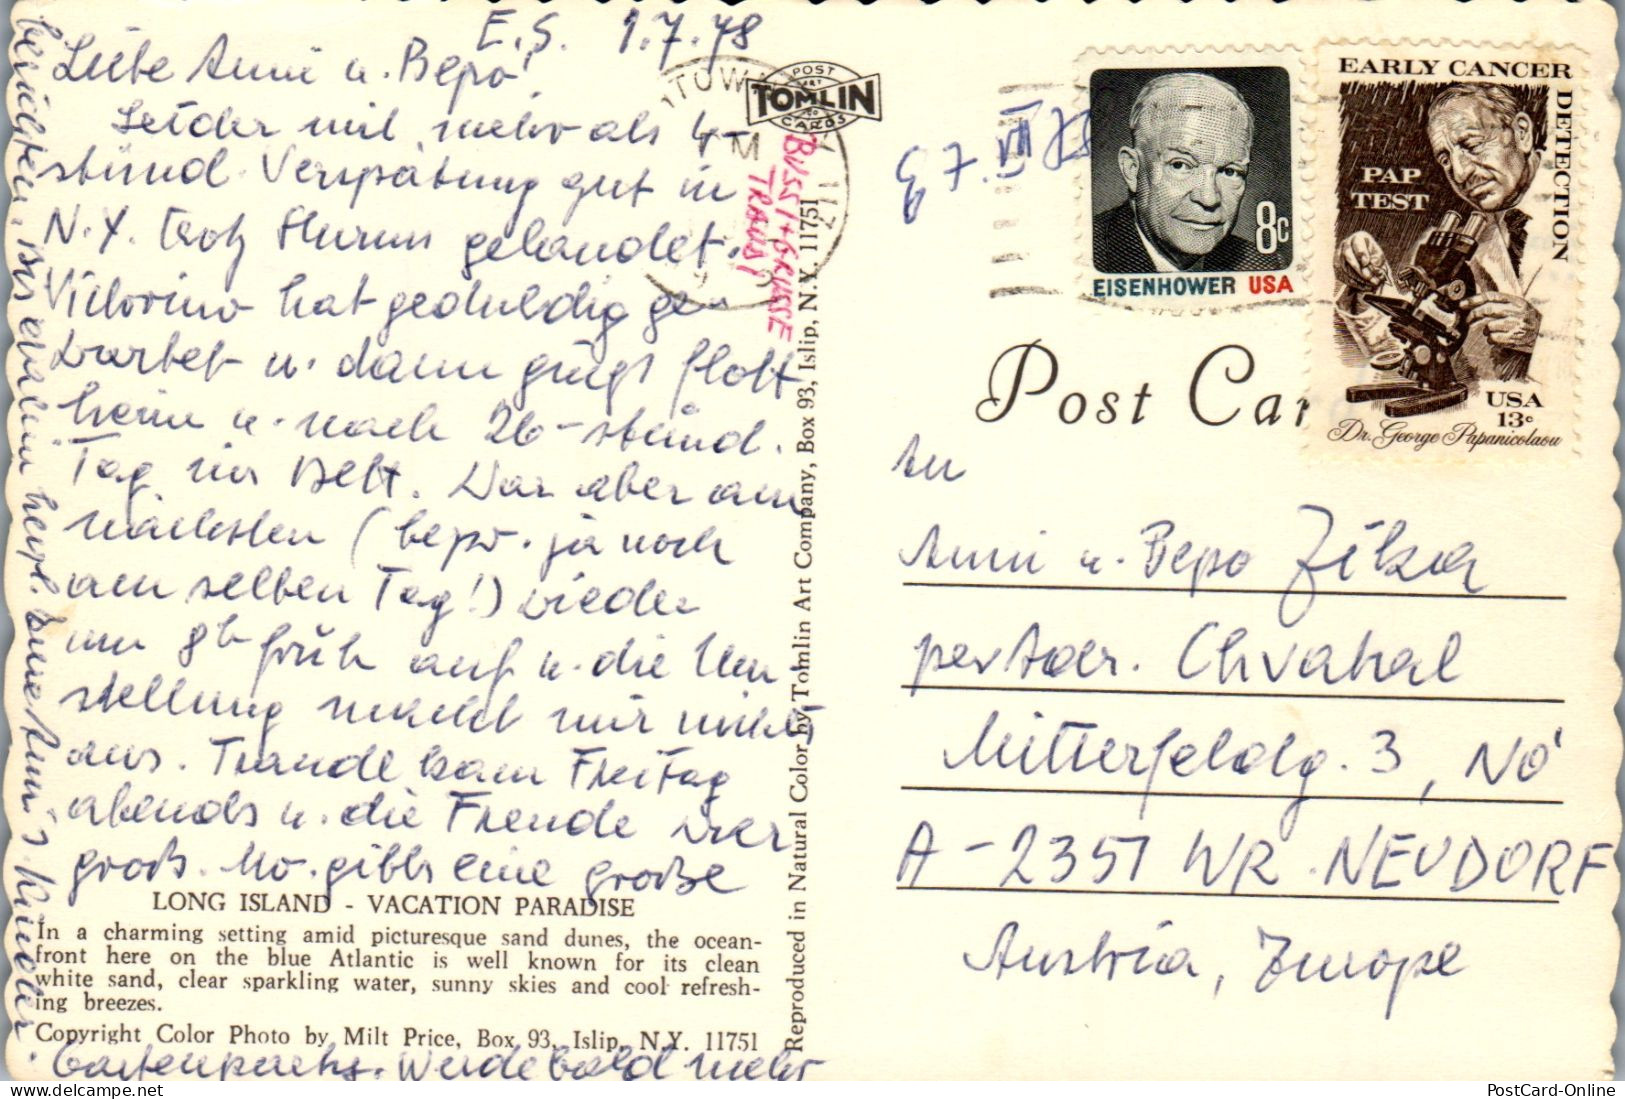 E.S. 1.7.78
Liebe Anni u. Bepo!
Leider mit mehr als 4-
stünd. Verspätung gut in
N.Y. trotz Sturms gelandet.
Vittorino hat geduldig ge-
wartet u. dann ging's flott
heim u. nach 26-stünd.
Tag ins Bett. War aber am
nächsten (bezw. ja noch
am selben Tag!) wieder
um 8h früh auf u. die Um
stellung macht mir nichts
aus. Traude kam Freitag
abends u. die Freude war
groß. Mo. gibts eine große
Gartenparty. Werde bald mehr
berichten. Bis dahin herzl. Eure Anni u. Kinder.
BUSSI + GRÜSSE
TRAUDI
LONG ISLAND - VACATION PARADISE
In a charming setting amid picturesque sand dunes, the ocean-
front here on the blue Atlantic is well known for its clean
white sand, clear sparkling water, sunny skies and cool refresh-
ing breezes.
Copyright Color Photo by Milt Price, Box 93, Islip, N.Y. 11751
Reproduced in Natural Color by Tomlin Art Company, Box 93, Islip, N.Y. 11751
POST
TOMLIN
ART CO
CARDS
PM
7. VII 78
EISENHOWER USA
8c
EARLY CANCER
DETECTION
PAP
TEST
USA
13c
Dr. George Papanicolaou
Post Car
An
Anni u. Bepo Zitka
per Adr. Chvatal
Mitterfeldg. 3, NÖ
A-2351 WR. NEUDORF
Austria, Europe
PostCard-Online